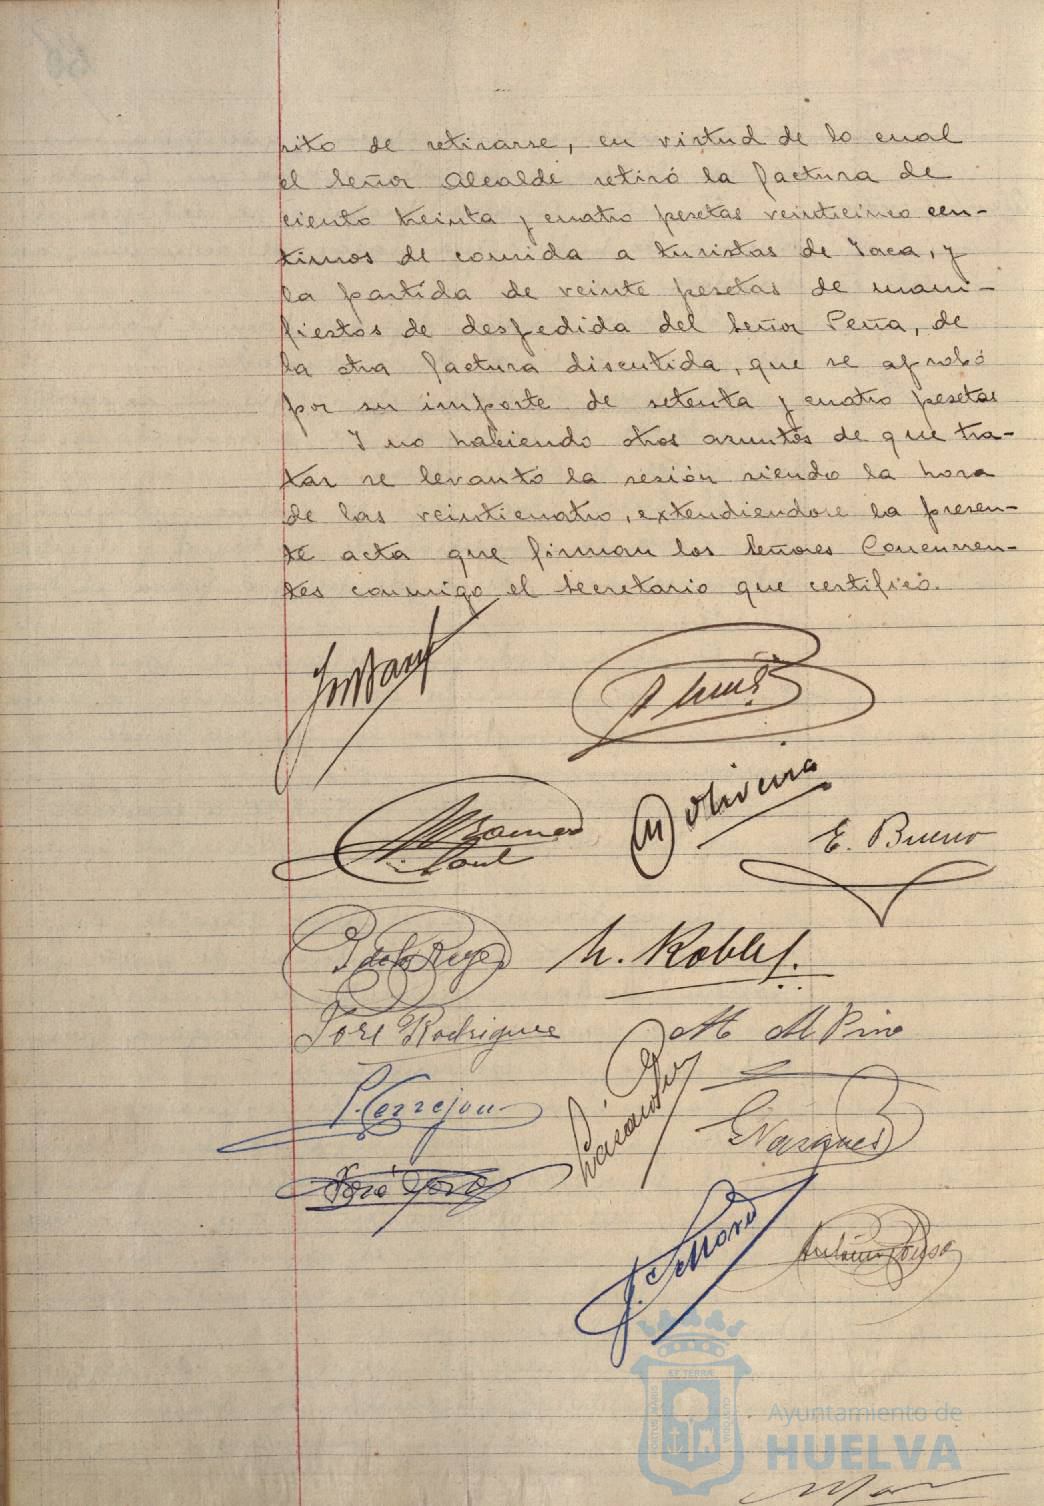 sito de retirarse, en virtud de lo cual
el Señor Alcalde retiró la factura de
ciento treinta y cuatro pesetas veinticinco cen-
timos de comida a turistas de Jaca, y
la partida de veinte pesetas de mani-
fiestos de despedida del Señor Peña, de
la otra factura discutida, que se aprobó
por su importe de setenta y cuatro pesetas
Y no habiendo otros asuntos de que tra-
tar se levantó la sesión siendo la hora
de las veinticuatro, extendiendose la presen-
te acta que firman los Señores Concurren-
tes conmigo el Secretario que certifico.
M Oliveira
E. Bueno
H. Robles.
José Rodriguez
M M Pino
P. Cerrejon
E Vazquez
José
Antonio Pousa
Ayuntamiento de
HUELVA